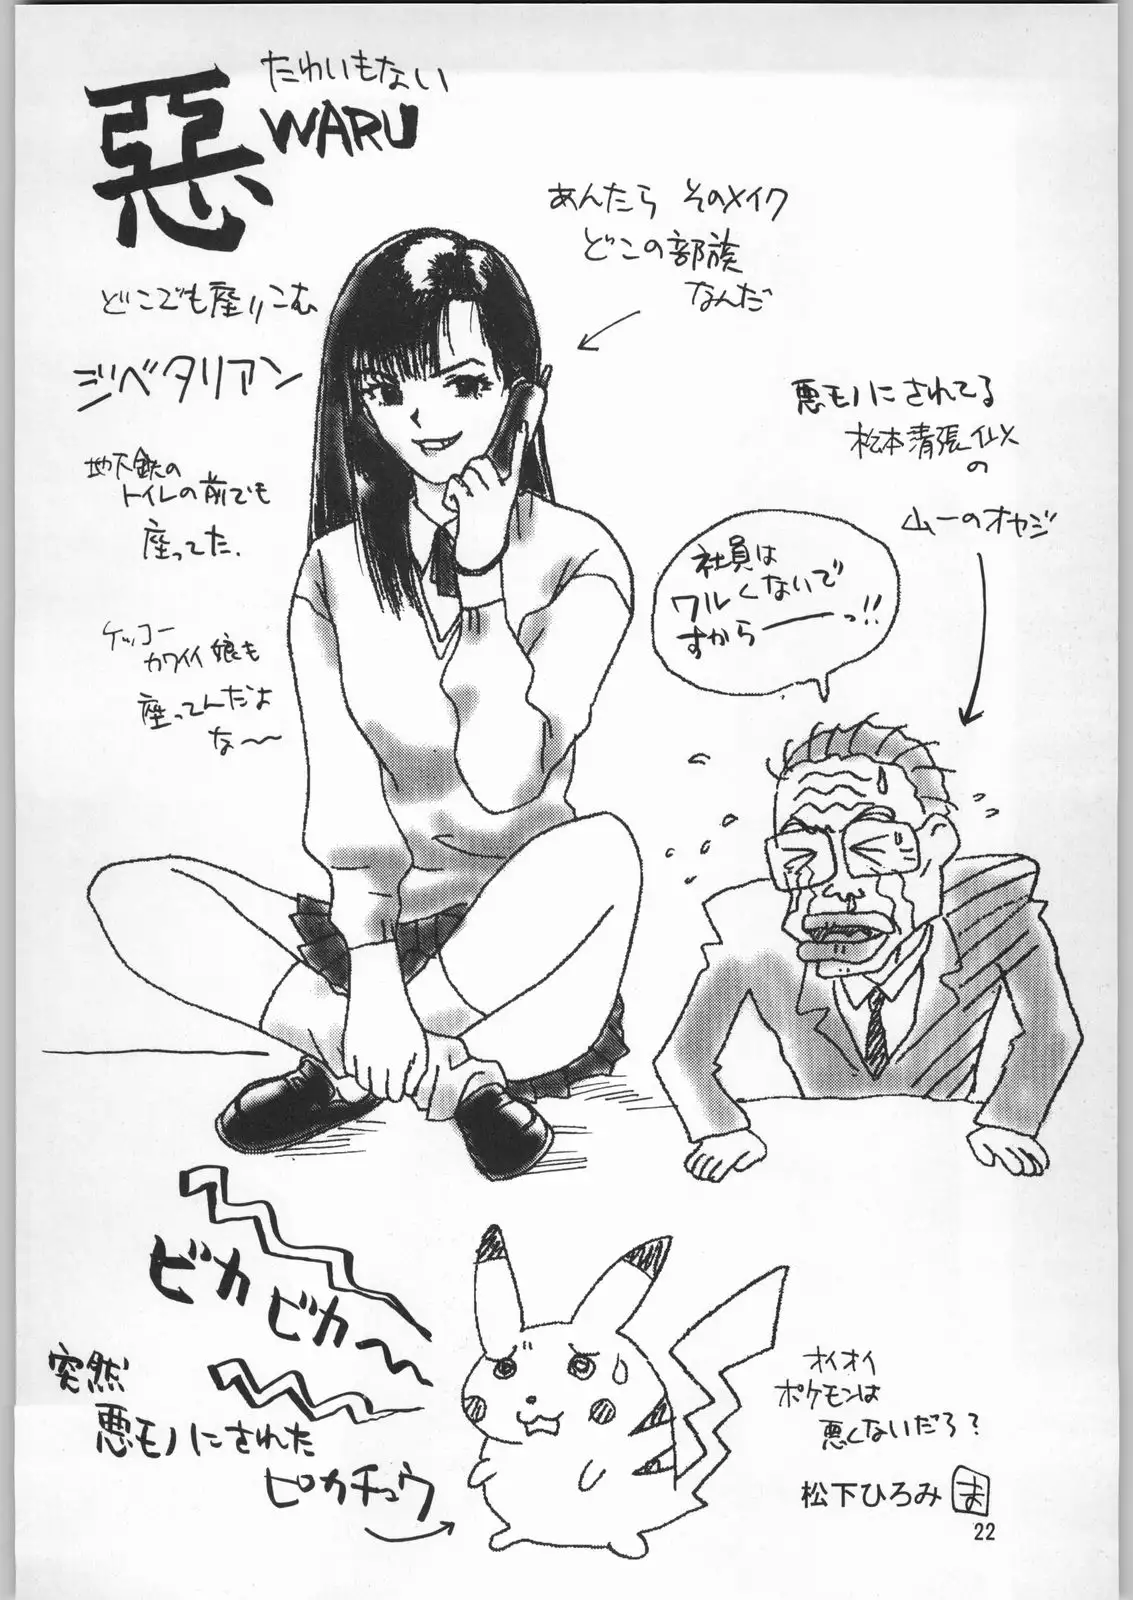 悪
たわいもない
WARU
あんたら そのメイク
どこの部族
なんだ
どこでも座りこむ
ジベタリアン
地下鉄の
トイレの前でも
座ってた.
ケッコー
カワイイ娘も
座ってんだよ
な〜〜
悪モノにされてる
松本清張イメ
の
山一のオヤジ
社員は
ワルくないで
すから――っ!!
ピカ
ピカ〜
突然
悪モノにされた
ピカチュウ
オイオイ
ポケモンは
悪くないだろ?
松下ひろみ ま
22